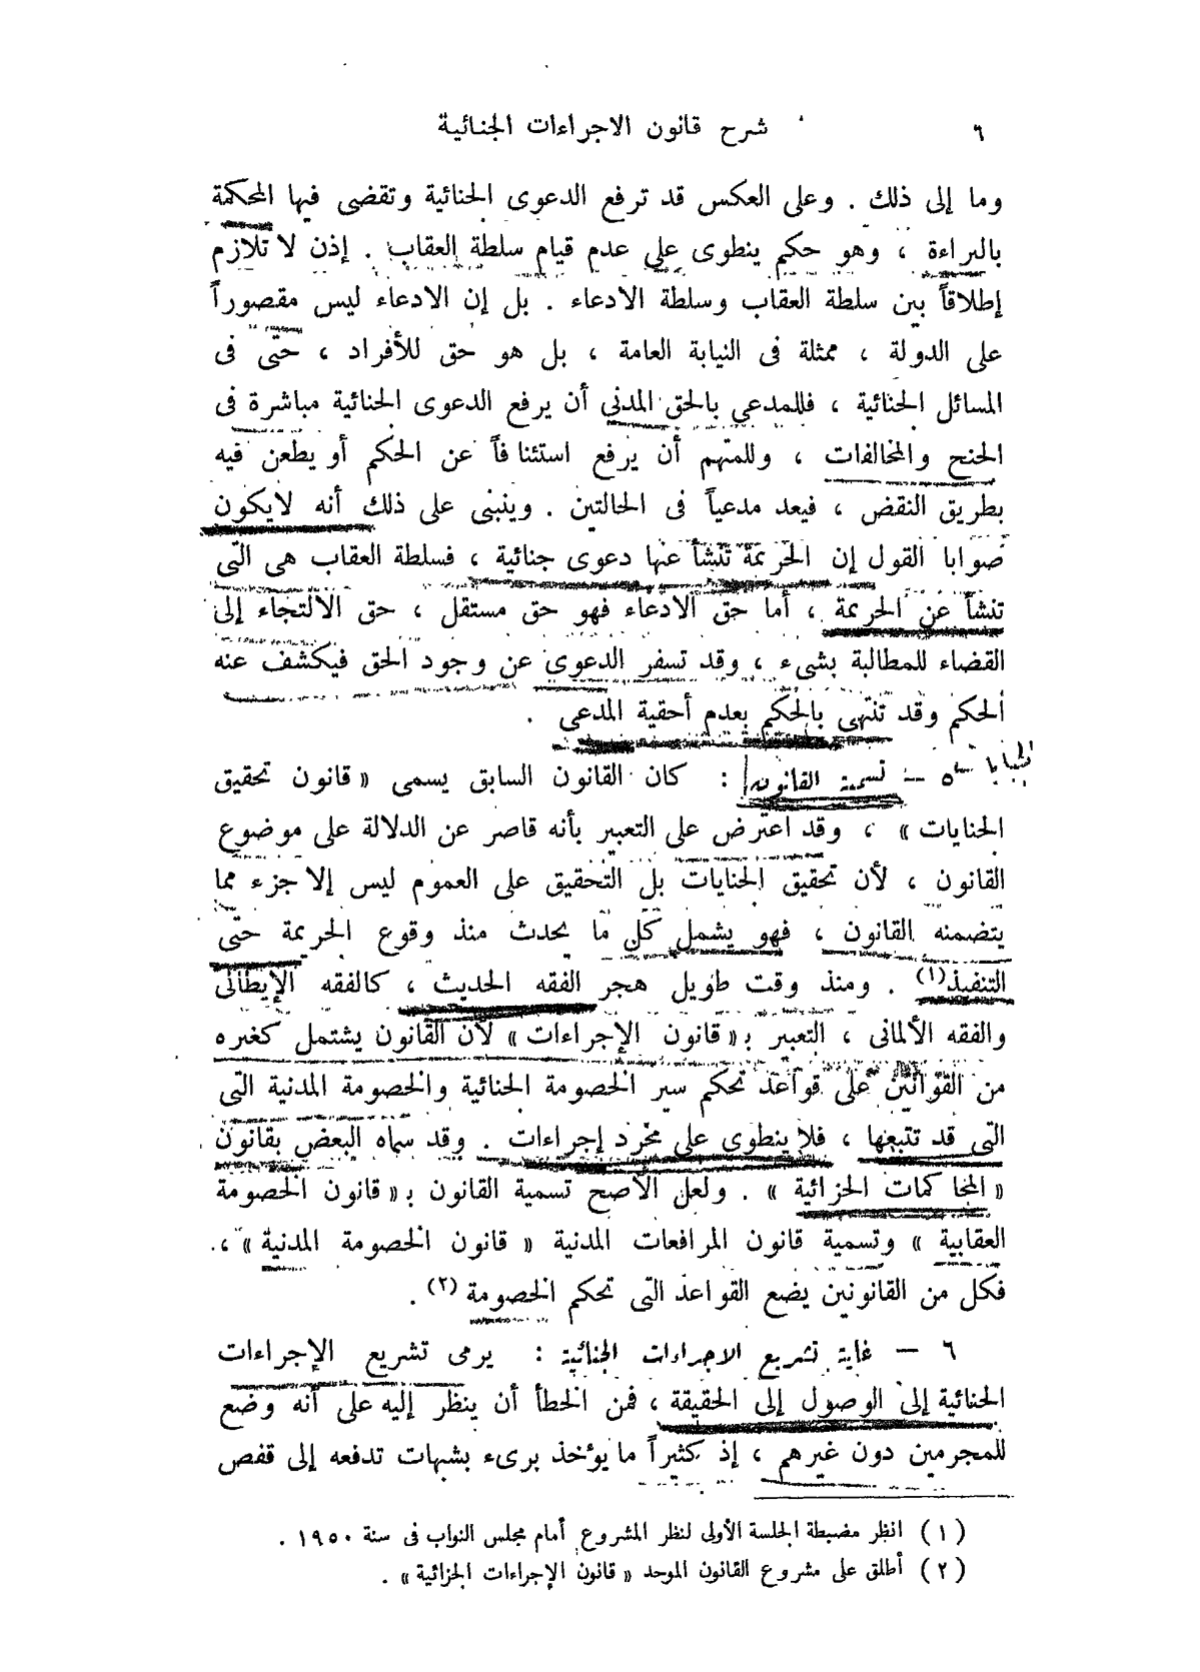 ٦ شرح قانون الاجراءات الجنائية
وما إلى ذلك . وعلى العكس قد ترفع الدعوى الجنائية وتقضى فيها المحكمة
بالبراءة ، وهو حكم ينطوى على عدم قيام سلطة العقاب . إذن لا تلازم
إطلاقاً بين سلطة العقاب وسلطة الادعاء . بل إن الادعاء ليس مقصوراً
على الدولة ، ممثلة فى النيابة العامة ، بل هو حق للأفراد ، حتى فى
المسائل الجنائية ، فللمدعي بالحق المدنى أن يرفع الدعوى الجنائية مباشرة فى
الجنح والمخالفات ، وللمتهم أن يرفع استئنافاً عن الحكم أو يطعن فيه
بطريق النقض ، فيعد مدعياً فى الحالتين . وينبنى على ذلك أنه لايكون
صوابا القول إن الجريمة تنشأ عنها دعوى جنائية ، فسلطة العقاب هى التى
تنشأ عن الجريمة ، أما حق الادعاء فهو حق مستقل ، حق الالتجاء إلى
القضاء للمطالبة بشىء ، وقد تسفر الدعوى عن وجود الحق فيكشف عنه
الحكم وقد تنتهى بالحكم بعدم أحقية المدعى .
٥ – تسمية القانون : كان القانون السابق يسمى « قانون تحقيق
الجنايات » ، وقد اعترض على التعبير بأنه قاصر عن الدلالة على موضوع
القانون ، لأن تحقيق الجنايات بل التحقيق على العموم ليس إلا جزء مما
يتضمنه القانون ، فهو يشمل كل ما يحدث منذ وقوع الجريمة حتى
التنفيذ(١) . ومنذ وقت طويل هجر الفقه الحديث ، كالفقه الإيطالى
والفقه الألمانى ، التعبير بـ« قانون الإجراءات » لأن القانون يشتمل كغيره
من القوانين على قواعد تحكم سير الخصومة الجنائية والخصومة المدنية التى
التى قد تتبعها ، فلا ينطوى على مجرد إجراءات . وقد سماه البعض بقانون
« المحاكمات الجزائية » . ولعل الأصح تسمية القانون بـ« قانون الخصومة
العقابية » وتسمية قانون المرافعات المدنية « قانون الخصومة المدنية » ،
فكل من القانونين يضع القواعد التى تحكم الخصومة (٢) .
٦ – غاية تشريع الاجراءات الجنائية : يرمى تشريع الإجراءات
الجنائية إلى الوصول إلى الحقيقة ، فمن الخطأ أن ينظر إليه على أنه وضع
للمجرمين دون غيرهم ، إذ كثيراً ما يؤخذ برىء بشبهات تدفعه إلى قفص
(١) انظر مضبطة الجلسة الأولى لنظر المشروع أمام مجلس النواب فى سنة ١٩٥٠ .
(٢) أطلق على مشروع القانون الموحد « قانون الإجراءات الجزائية » .